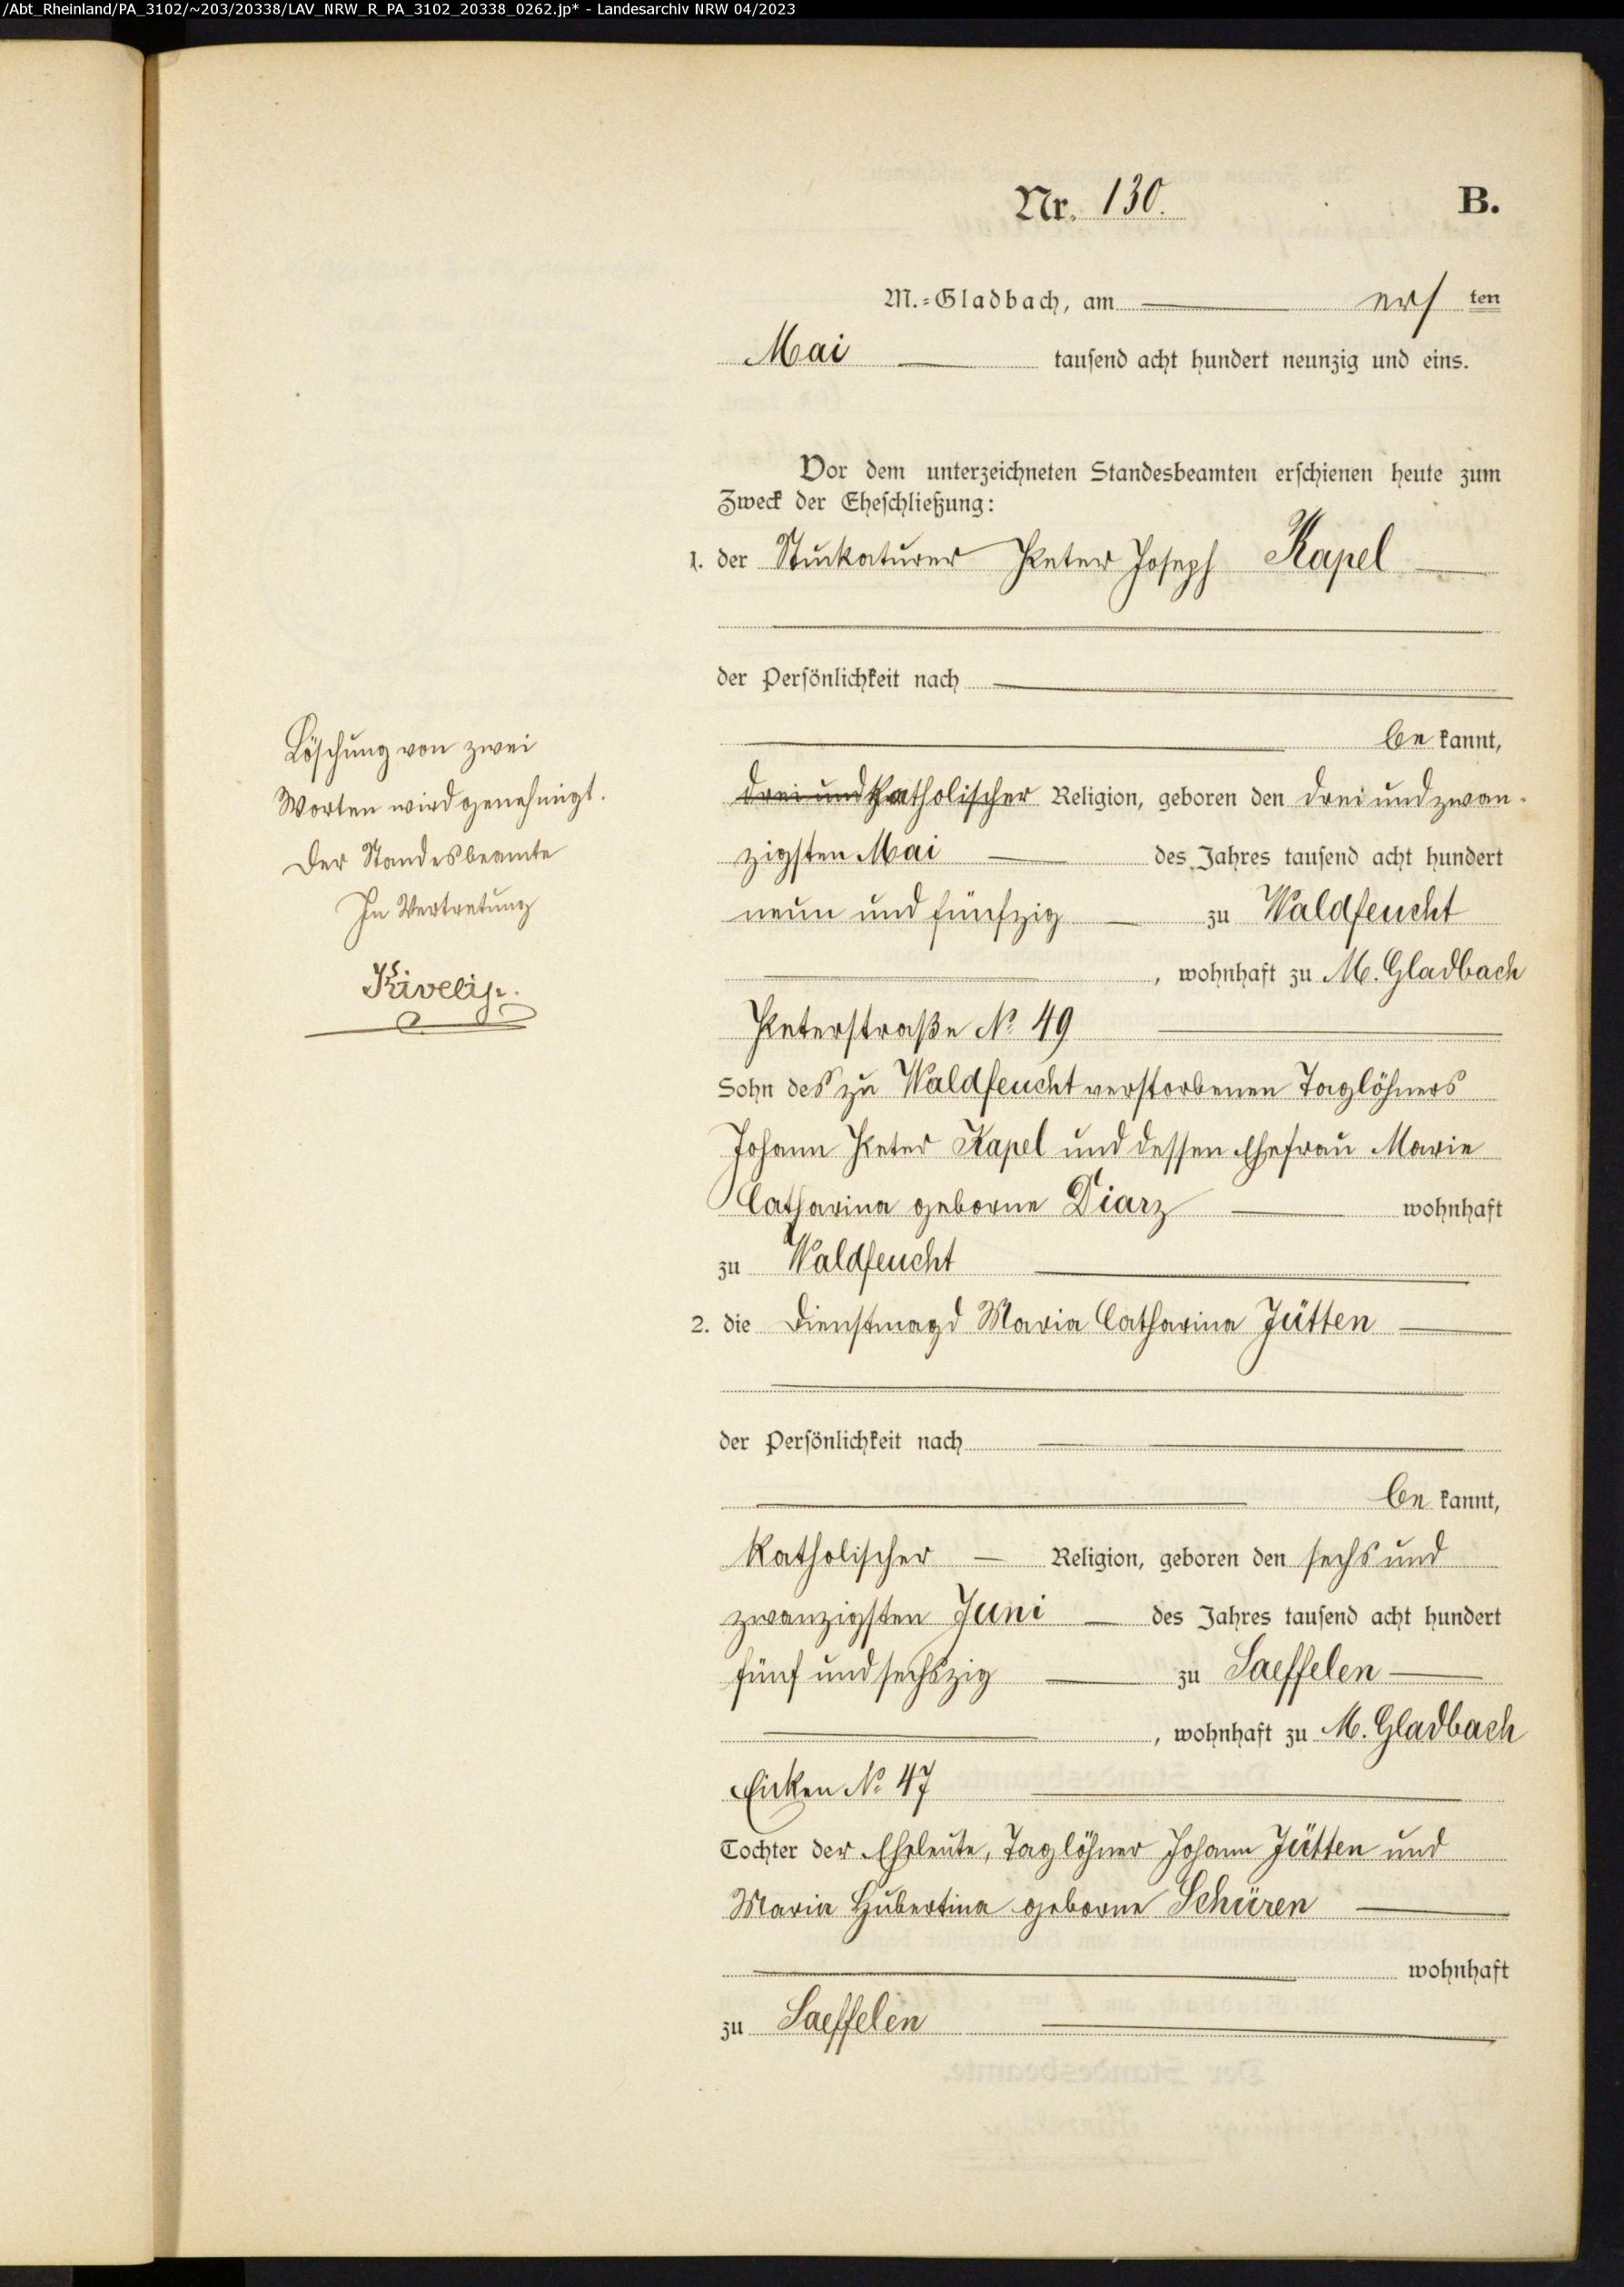 /Abt_Rheinland/PA_3102/~203/20338/LAV_NRW_R_PA_3102_20338_0262.jp* - Landesarchiv NRW 04/2023
Nr. 130. B.
M.=Gladbach, am ersten
Mai tausend acht hundert neunzig und eins.
Vor dem unterzeichneten Standesbeamten erschienen heute zum
Zweck der Eheschließung:
1. der Stuckaturer Peter Joseph Kapel
der Persönlichkeit nach
be kannt,
drei und katholischer Religion, geboren den drei und zwan-
zigsten Mai des Jahres tausend acht hundert
neun und fünfzig zu Waldfeucht
, wohnhaft zu M. Gladbach
Peterstraße No 49
Sohn des zu Waldfeucht verstorbenen Taglöhners
Johann Peter Kapel und dessen Ehefrau Marie
Catharina geborne Diarz wohnhaft
zu Waldfeucht
2. die Dienstmagd Maria Catharina Jütten
der Persönlichkeit nach
be kannt,
katholischer Religion, geboren den sechs und
zwanzigsten Juni des Jahres tausend acht hundert
fünf und sechszig zu Saeffelen
, wohnhaft zu M. Gladbach
Eicken No 47
Tochter der Eheleute, Taglöhner Johann Jütten und
Maria Hubertina geborne Schüren
wohnhaft
zu Saeffelen
Löschung von zwei
Worten wird genehmigt.
Der Standesbeamte
In Vertretung